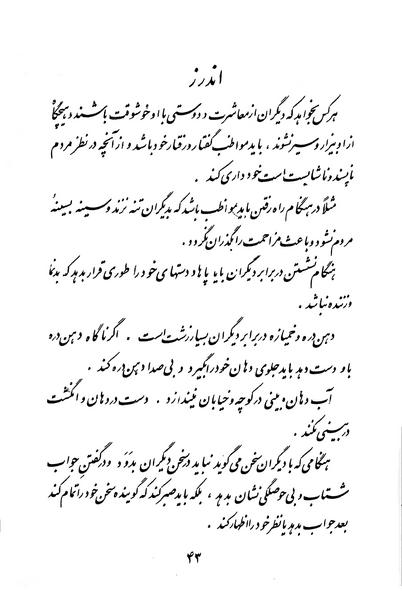 اندرز
هرکس بخواهد که دیگران از معاشرت و دوستی با او خوشوقت باشند و هیچگاه
از او بیزار و سیر نشوند ، باید مواظب گفتار و رفتار خود باشد و از آنچه در نظر مردم
ناپسند و ناشایست است خودداری کند .
مثلاً در هنگام راه رفتن باید مواظب باشد که بدیگران تنه نزند و سینه بسینهٔ
مردم نشود و باعث مزاحمت رهگذران نگردد .
هنگام نشستن در برابر دیگران باید پاها و دستهای خود را طوری قرار بدهد که بدنما
و زننده نباشد .
دهن دره و خمیازه در برابر دیگران بسیار زشت است . اگر ناگاه دهن دره
باو دست دهد باید جلوی دهان خود را بگیرد و بی صدا دهن دره کند .
آب دهان و بینی در کوچه و خیابان نیندازد . دست در دهان و انگشت
در بینی نکند .
هنگامی که با دیگران سخن می گوید نباید در سخن دیگران بدَوَد و در گفتنِ جواب
شتاب و بی حوصلگی نشان بدهد ، بلکه باید صبر کند که گوینده سخن خود را تمام کند
بعد جواب بدهد یا نظر خود را اظهار کند .
۴۳